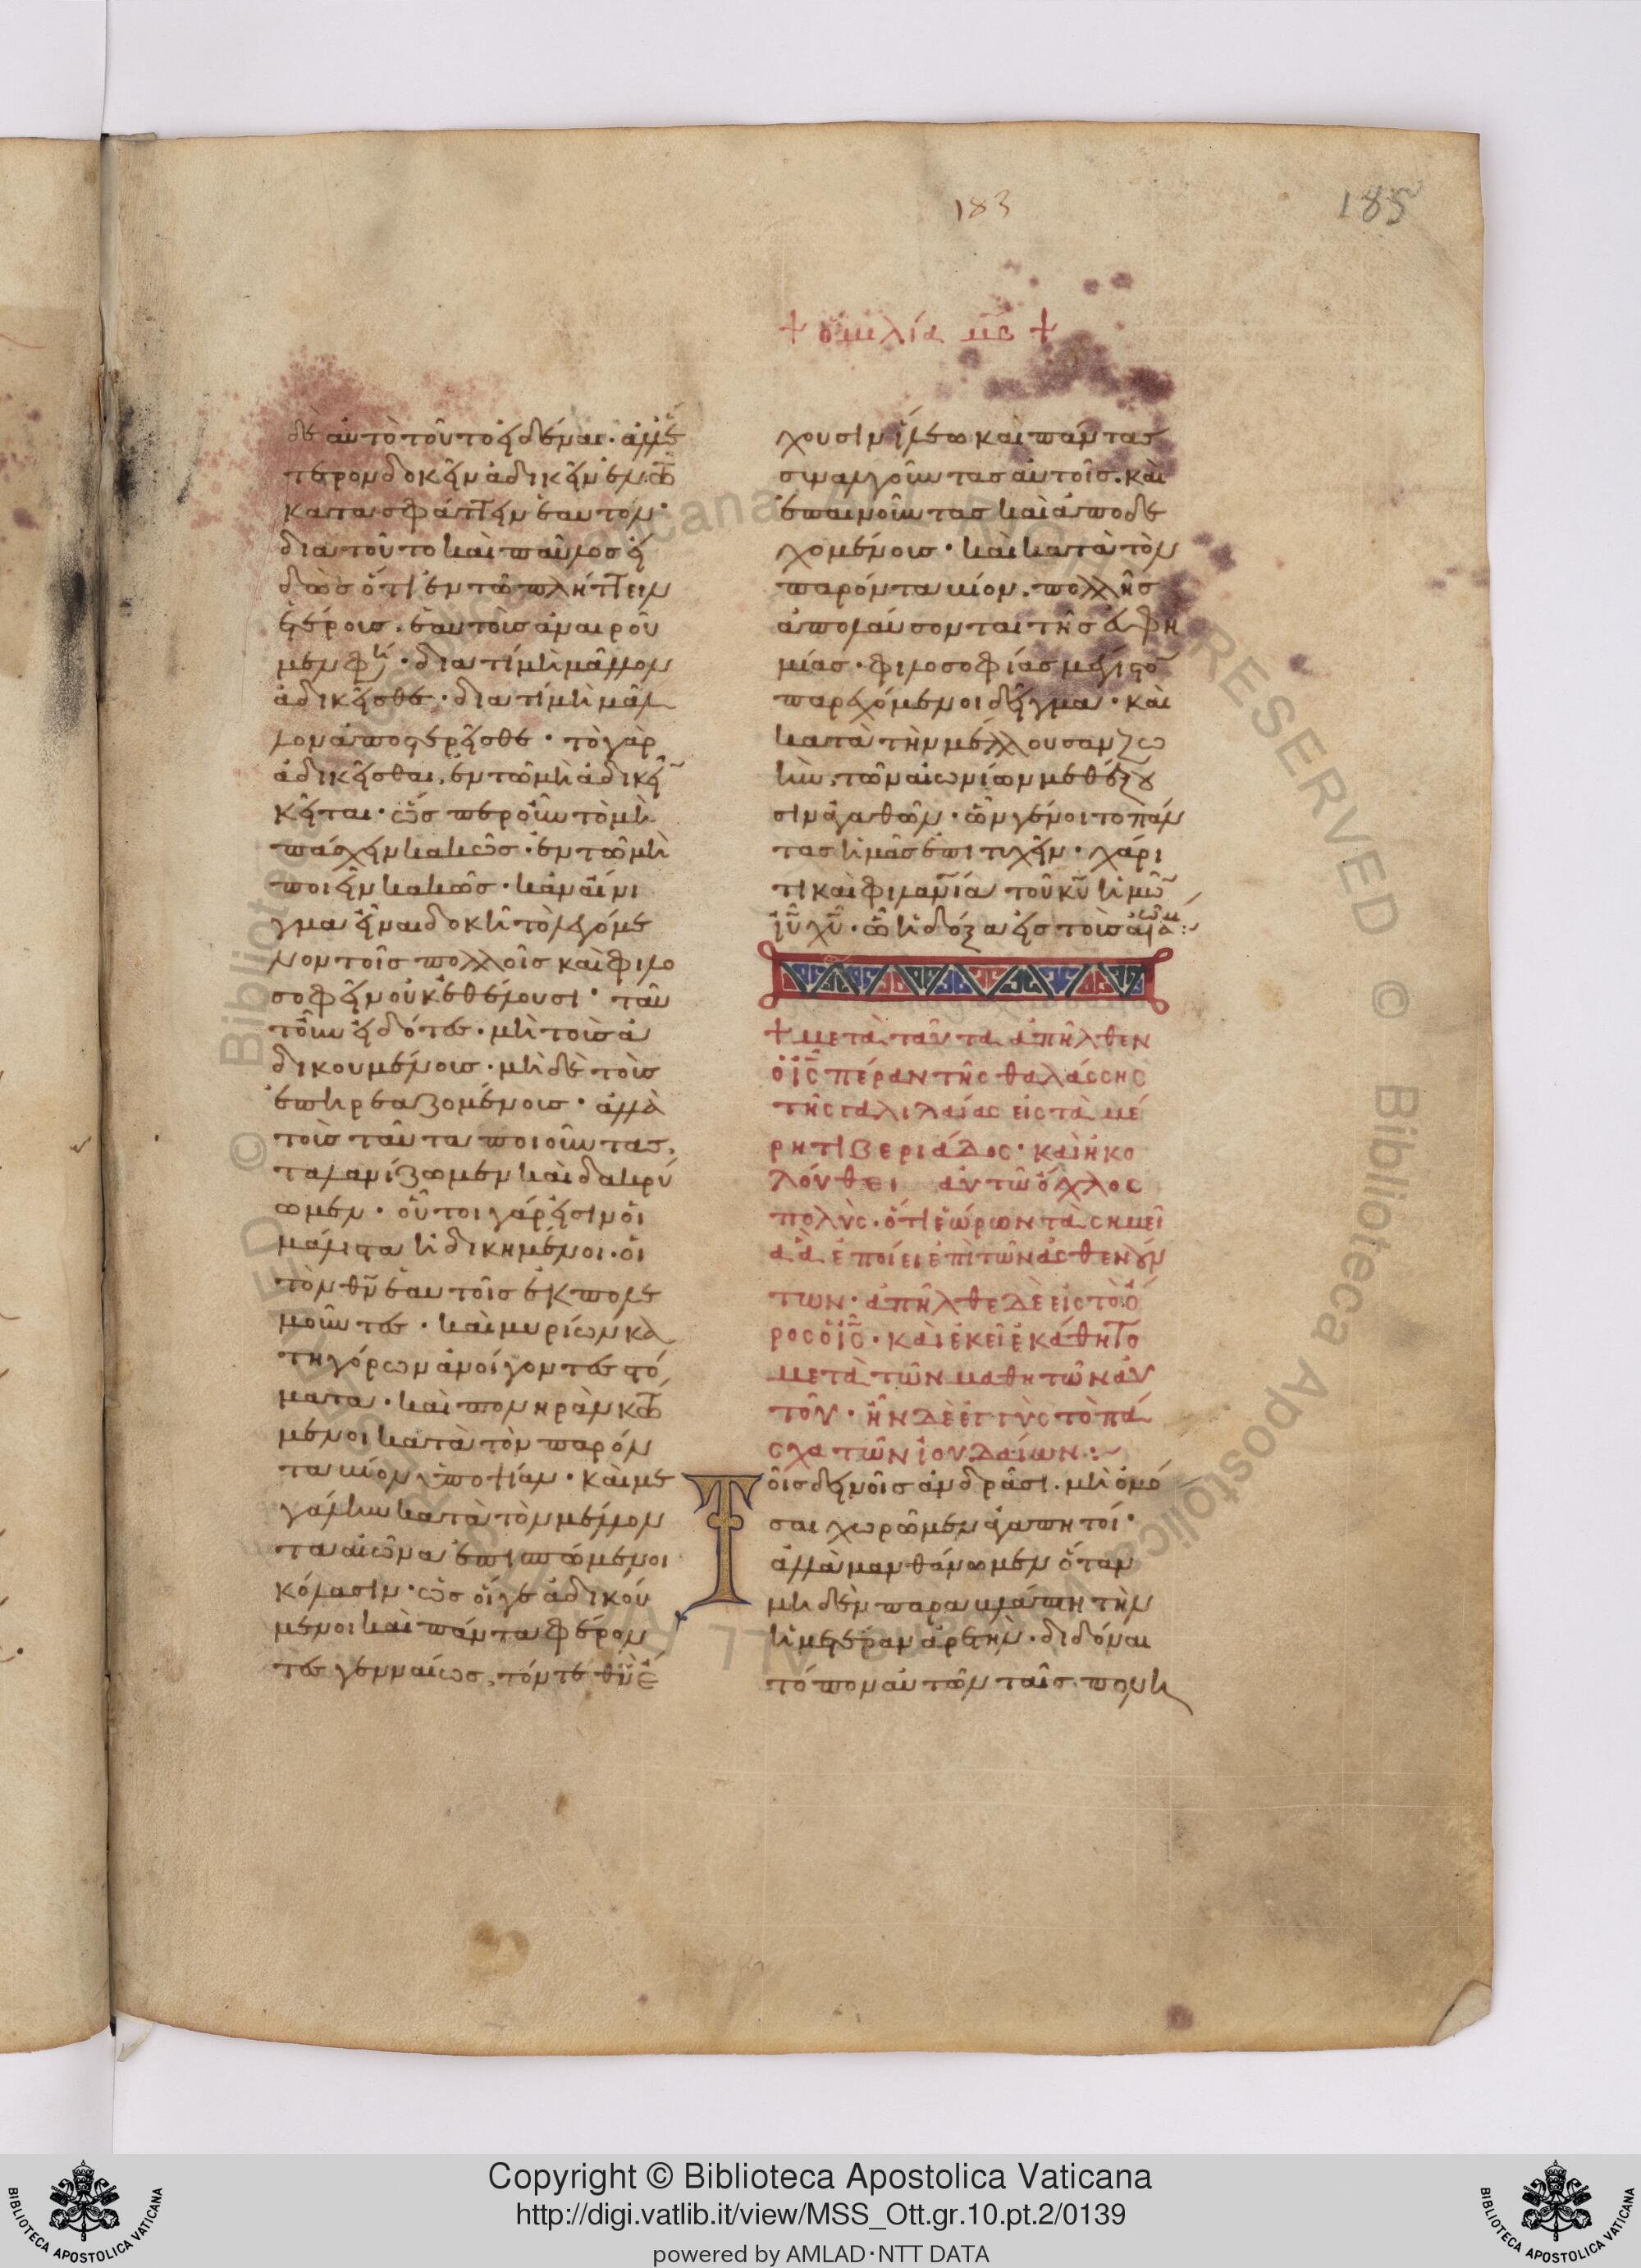 183
185
+ ὁμιλία μβ +
δὲ αὐτὸ τοῦτο εἰδέναι· ἀμέ
τερον δοκεῖν ἀδικεῖν ἐν τῶ
κατασφάττειν ἑαυτόν·
διατοῦτο καὶ παῦλος εἰ
δὼς ὅτι ἐν τῶ πλήττειν
ἑτέροις, ἑαυτοὺς ἀναιροῦ
μεν φη· διατί μὴ μᾶλλον
ἀδικεῖσθε· διατί μὴ μᾶλ
λον ἀποστερεῖσθε· τὸ γὰρ
ἀδικεῖσθαι, ἐν τῶ μὴ ἀδικεῖν
κεῖται· ὥσπερ οὖν τὸ μὴ
πάσχειν κακῶς· ἐν τῶ μὴ
ποιεῖν κακῶς· κἂν αἴνι
γμα εἶναι δοκῆ τὸ λεγόμε
νον τοῖς πολλοῖς καὶ φιλο
σοφεῖν οὐκ ἐθέλουσι· ταῦ
τ' οὖν εἰδότες· μὴ τοὺς ἀ
δικουμένους· μὴ δὲ τοὺς
ἐπηρεαζομένους· ἀλλὰ
τοὺς ταῦτα ποιοῦντας,
ταλανίζωμεν καὶ δακρύ
ωμεν· οὗτοι γάρ εἰσιν οἱ
μάλιστα ἠδικημένοι· οἱ
τὸν θν ἑαυτοῖς ἐκπολε
μοῦντες· καὶ μυρίων κα
τηγόρων ἀνοίγοντες στό
ματα· καὶ πονηρὰν κτώ
μενοι κατὰ τὸν παρόν
τα βίον ὑποψίαν· καὶ με
γάλην κατὰ τὸν μέλλον
τα αἰῶνα ἐπισπώμενοι
κόλασιν· ὡς οἵγε ἀδικού
μενοι καὶ πάντα φέρον
τες γενναίως, τόν τε θν ἔ
χουσιν ἵλεω καὶ πάντας
συναλγοῦντας αὐτοῖς. καὶ
ἐπαινοῦντας καὶ ἀποδε
χομένους· καὶ κατὰ τὸν
παρόντα βίον. πολλῆς
ἀπολαύσονται τῆς εὐφη
μίας· φιλοσοφίας μέγιστον
παρεχόμενοι δεῖγμα· καὶ
κατὰ τὴν μέλλουσαν ζω
ὴν, τῶν αἰωνίων μεθέξου
σιν ἀγαθῶν· ὧν γένοιτο πάν
τας ἡμᾶς ἐπιτυχεῖν· χάρι
τι καὶ φιλανία τοῦ κυ ἡμῶν
ιυ χυ· ὧ ἡ δόξα εἰς τοὺς αἰῶνας:
+ μετὰ ταῦτα ἀπῆλθεν
ὁ ις πέραν τῆς θαλάσσης
τῆς γαλιλαίας εἰς τὰ μέ
ρη τιβεριάδος· καὶ ἠκο
λούθει αὐτῶ ὄχλος
πολὺς. ὅτι ἑώρων τὰ σημεῖ
α ἃ ἐποίει ἐπὶ τῶν ἀσθενούν
των· ἀπῆλθε δὲ εἰς τὸ ὄ
ρος ὁ ις· καὶ ἐκεῖ ἐκάθητο
μετὰ τῶν μαθητῶν αὐ
τοῦ· ἦν δὲ ἐγγὺς τὸ πά
σχα τῶν ἰουδαίων:
Τοῖς δεινοῖς ἀνδράσι. μὴ ὁμό
σαι χωρῶμεν ἀγαπητοί·
ἀλλὰ μανθάνωμεν ὅταν
μηδὲν παραβλάπτη τὴν
ἡμετέραν ἀρετὴν· διδόναι
τόπον αὐτῶν ταῖς πονη
Copyright © Biblioteca Apostolica Vaticana
http://digi.vatlib.it/view/MSS_Ott.gr.10.pt.2/0139
powered by AMLAD·NTT DATA
BIBLIOTECA APOSTOLICA VATICANA
BIBLIOTECA APOSTOLICA VATICANA